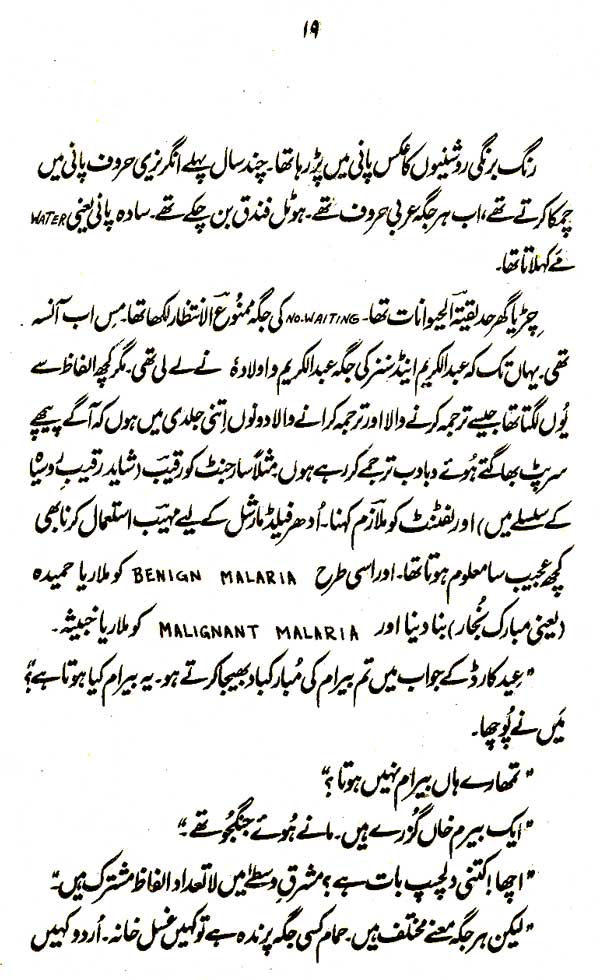 ۱۹
رنگ برنگی روشنیوں کا عکس پانی میں پڑ رہا تھا۔ چند سال پہلے انگریزی حروف پانی میں
چمکا کرتے تھے، اب ہر جگہ عربی حروف تھے۔ ہوٹل فندق بن چکے تھے۔ سادہ پانی یعنی WATER
مے کہلاتا تھا۔
چڑیا گھر حدیقۃ الحیوانات تھا۔ NO.WAITING کی جگہ ممنوع الانتظار لکھا تھا۔ مس اب آنسہ
تھی۔ یہاں تک کہ عبدالکریم اینڈ سنز کی جگہ عبدالکریم و اولادہٗ نے لے لی تھی۔ مگر کچھ الفاظ سے
یُوں لگتا تھا جیسے ترجمہ کرنے والا اور ترجمہ کرانے والا دونوں اِتنی جلدی میں ہوں کہ آگے پیچھے
سرپٹ بھاگتے ہُوئے دبادب ترجمے کر رہے ہوں۔ مثلاً سارجنٹ کو رقیب (شاید رقیبِ رُوسیاہ
کے سلسلے میں) اور لفٹنٹ کو ملازم کہنا۔ اُدھر فیلڈ مارشل کے لیے مہیب استعمال کرنا بھی
کچھ عجیب سا معلوم ہوتا تھا۔ اور اسی طرح BENIGN MALARIA کو ملاریا حمیدہ
(یعنی مبارک بُخار) بنا دینا اور MALIGNANT MALARIA کو ملاریا خبیثہ۔
"عید کارڈ کے جواب میں تم بیرام کی مُبارکباد بھیجا کرتے ہو۔ یہ بیرام کیا ہوتا ہے؟"
مَیں نے پُوچھا۔
"تمھارے ہاں بیرام نہیں ہوتا؟"
"ایک بیرم خاں گزرے ہیں۔ مانے ہُوئے جنگجُو تھے۔"
"اچھا! کتنی دلچسپ بات ہے؟ مشرقِ وسطےٰ میں لاتعداد الفاظ مشترک ہیں۔"
"لیکن ہر جگہ معنے مختلف ہیں۔ حمام کسی جگہ پرندہ ہے تو کہیں غسل خانہ۔ اُردو کہیں